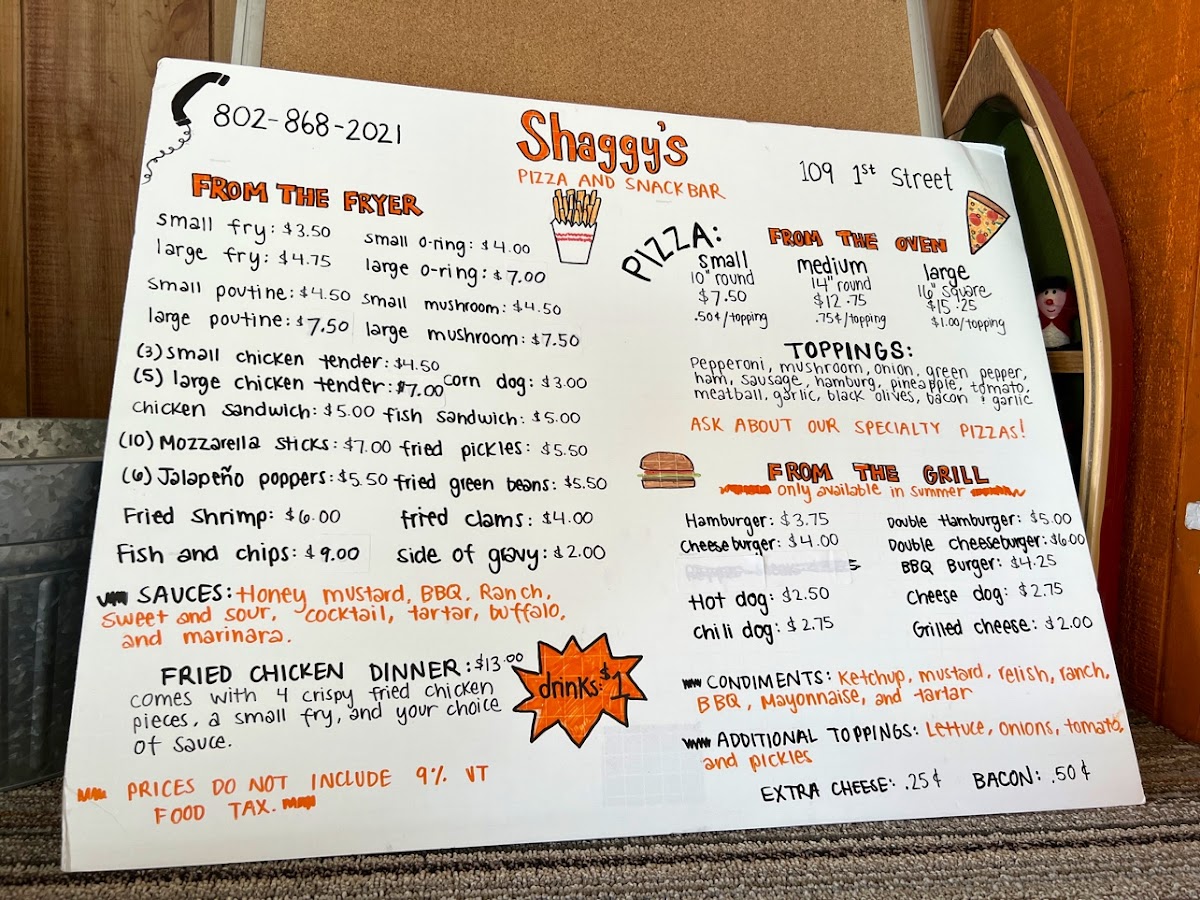 802-868-2021
Shaggy's
PIZZA AND SNACK BAR
109 1st Street
FROM THE FRYER
small fry: $3.50 small o-ring: $4.00
large fry: $4.75 large o-ring: $7.00
small poutine: $4.50 small mushroom: $4.50
large poutine: $7.50 large mushroom: $7.50
(3) small chicken tender: $4.50
(5) large chicken tender: $7.00 corn dog: $3.00
chicken sandwich: $5.00 fish sandwich: $5.00
(10) Mozzarella sticks: $7.00 fried pickles: $5.50
(6) Jalapeño poppers: $5.50 fried green beans: $5.50
Fried Shrimp: $6.00 fried clams: $4.00
Fish and chips: $9.00 side of gravy: $2.00
SAUCES: Honey mustard, BBQ, Ranch,
sweet and sour, cocktail, tartar, buffalo,
and marinara.
FRIED CHICKEN DINNER: $13.00
comes with 4 crispy fried chicken
pieces, a small fry, and your choice
of sauce.
drinks: $1
PRICES DO NOT INCLUDE 9% VT
FOOD TAX.
PIZZA:
FROM THE OVEN
small medium large
10" round 14" round 16" square
$7.50 $12.75 $15.25
.50¢/topping .75¢/topping $1.00/topping
TOPPINGS:
Pepperoni, mushroom, onion, green pepper,
ham, sausage, hamburg, pineapple, tomato,
meatball, garlic, black olives, bacon & garlic
ASK ABOUT OUR SPECIALTY PIZZAS!
FROM THE GRILL
only available in summer
Hamburger: $3.75 Double Hamburger: $5.00
Cheeseburger: $4.00 Double cheeseburger: $6.00
BBQ Burger: $4.25
Hot dog: $2.50 Cheese dog: $2.75
Chili dog: $2.75 Grilled cheese: $2.00
CONDIMENTS: Ketchup, mustard, relish, ranch,
BBQ, Mayonnaise, and tartar
ADDITIONAL TOPPINGS: Lettuce, onions, tomato,
and pickles
EXTRA CHEESE: .25¢ BACON: .50¢